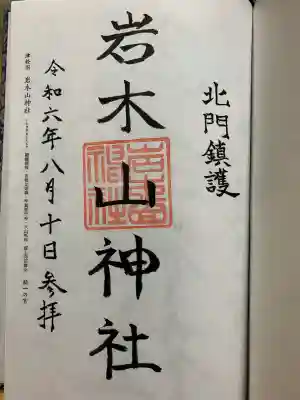 北門鎮護
岩木山神社
令和六年八月十日参拝
津軽国 岩木山神社